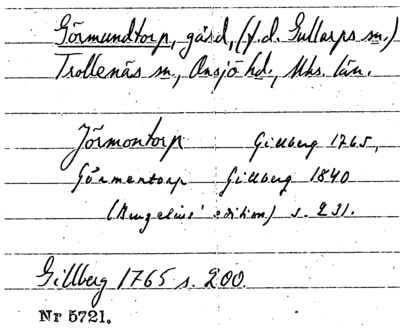 Görmundtorp, gård, (f.d. Gullarps sn.)
Trollenäs sn., Onsjö hd., Mhs. län.
Jörmontorp Gillberg 1765,
Görmentorp Gillberg 1840
(Brugelius' edition) s. 231.
Gillberg 1765 s. 200.
Nr 5721.